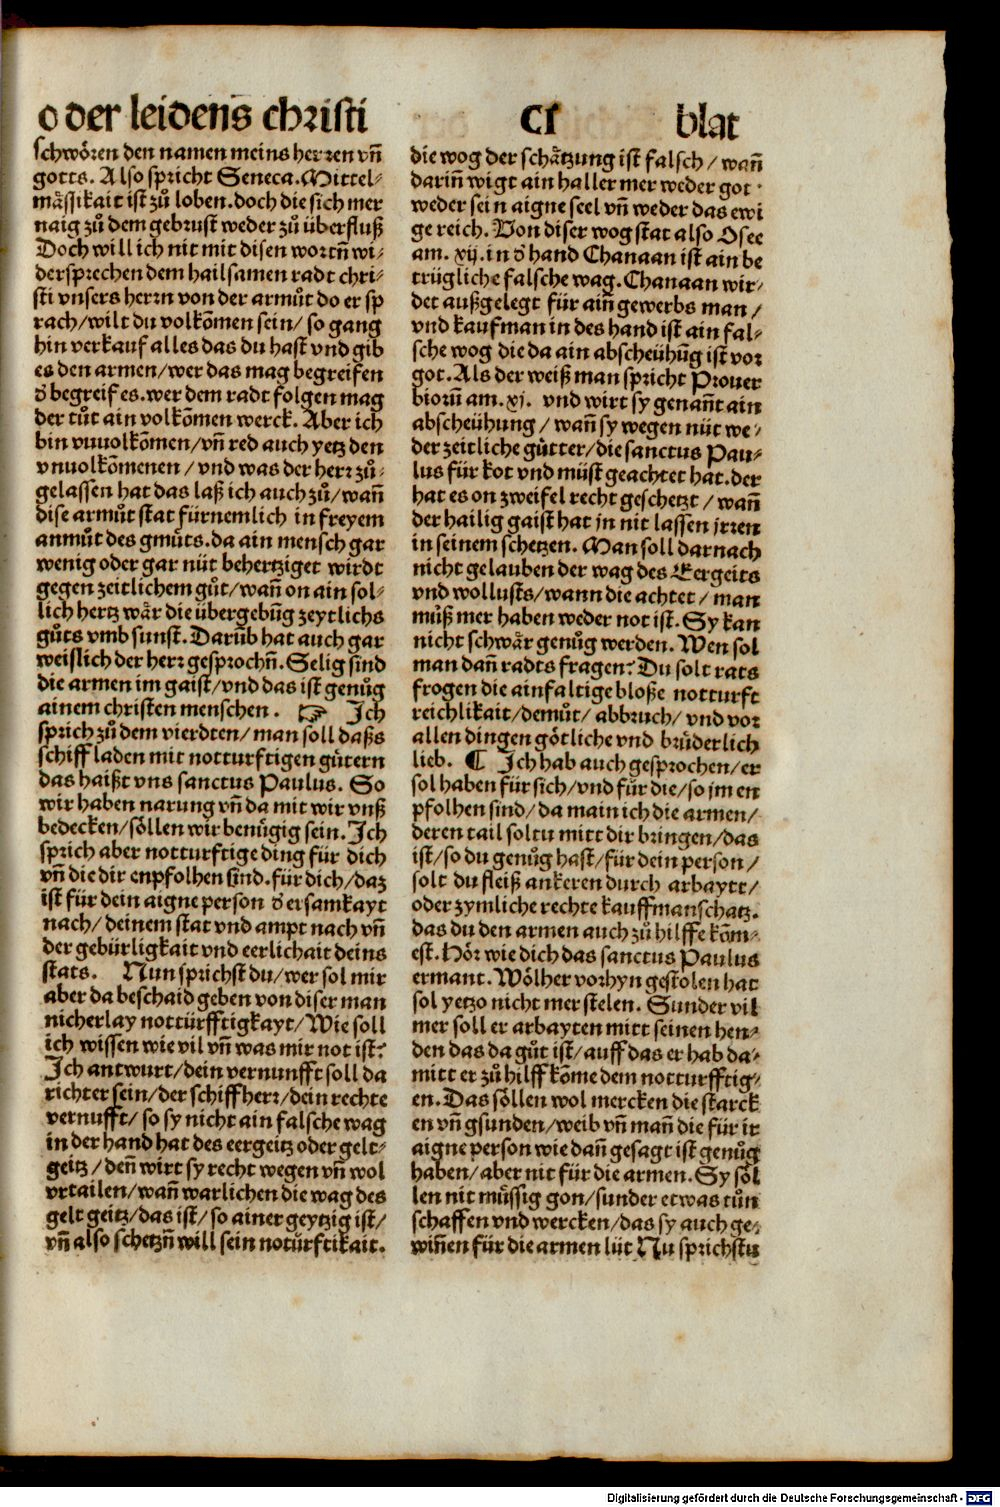 o der leidens christi CI blat
schwören den namen meins herren vñ
gotts. Also spricht Seneca. Mittel-
mässikait ist zů loben. doch die sich mer
naig zů dem gebrust weder zů überfluß
Doch will ich nit mit disen wortñ wi-
dersprechen dem hailsamen radt chri-
sti vnsers herrn von der armůt do er sp
rach/wilt du volkõmen sein/ so gang
hin verkauf alles das du hast vnd gib
es den armen/wer das mag begreifen
d̕ begreif es. wer dem radt folgen mag
der tůt ain volkõmen werck. Aber ich
bin vnuolkõmen/vñ red auch yetz den
vnuolkõmenen/ vnd was der herr zů-
gelassen hat das laß ich auch zů/wañ
dise armůt stat fürnemlich in freyem
anmůt des gmůts. da ain mensch gar
wenig oder gar nüt behertziget wirdt
gegen zeitlichem gůt/wañ on ain sol-
lich hertz wår die übergebũg zeytlichs
gůts vmb sunst. Darũb hat auch gar
weislich der herr gesprochñ. Selig sind
die armen im gaist/vnd das ist genůg
ainem christen menschen. ☞ Ich
sprich zů dem vierdten/man soll daßs
schiff laden mit notturftigen gůtern
das haißt vns sanctus Paulus. So
wir haben narung vñ da mit wir vnß
bedecken/söllen wir benůgig sein. Ich
sprich aber notturftige ding für dich
vñ die dir enpfolhen sind. für dich/daz
ist für dein aigne person d̕ ersamkayt
nach/deinem stat vnd ampt nach vñ
der gebürligkait vnd eerlichait deins
stats. Nun sprichst du/wer sol mir
aber da beschaid geben von diser man
nicherlay nottürfftigkayt/Wie soll
ich wissen wie vil vñ was mir not ist?
Ich antwurt/dein vernunfft soll da
richter sein/der schiffherr/dein rechte
vernufft/ so sy nicht ain falsche wag
in der hand hat des eergeitz oder gelt-
geitz/deñ wirt sy recht wegen vñ wol
vrtailen/wañ warlichen die wag des
gelt geitz/das ist/ so ainer geytzig ist/
vñ also schetzñ will sein notürftikait.
die wog der schätzung ist falsch/ wañ
dariñ wigt ain haller mer weder got
weder sein aigne seel vñ weder das ewi
ge reich. Von diser wog stat also Osee
am. xij. in d̕ hand Chanaan ist ain be
trügliche falsche wag. Chanaan wir-
det außgelegt für aiñ gewerbs man/
vnd kaufman in des hand ist ain fal-
sche wog die da ain abscheühũg ist vor
got. Als der weiß man spricht Prouer
biorũ am. xj. vnd wirt sy genañt ain
abscheühung/ wañ sy wegen nüt we-
der zeitliche gůtter/die sanctus Pau-
lus für kot vnd müst geachtet hat. der
hat es on zweifel recht geschetzt/ wañ
der hailig gaist hat jn nit lassen jrren
in seinem schetzen. Man soll darnach
nicht gelauben der wag des Eergeits
vnd wollusts/wann die achtet/ man
můß mer haben weder not ist. Sy kan
nicht schwår genůg werden. Wen sol
man dañ radts fragen? Du solt rats
frogen die ainfaltige bloße notturft
reichlikait/demůt/ abbruch/ vnd vor
allen dingen götliche vnd brůderlich
lieb. ¶ Ich hab auch gesprochen/er
sol haben für sich/vnd für die/so jm en
pfolhen sind/da main ich die armen/
deren tail soltu mitt dir bringen/das
ist/so du genůg hast/für dein person/
solt du fleiß ankeren durch arbaytt/
oder zymliche rechte kauffmanschatz.
das du den armen auch zů hilffe kõm-
est. Hör wie dich das sanctus Paulus
ermant. Wölher vorhyn gestolen hat
sol yetzo nicht mer stelen. Sunder vil
mer soll er arbayten mitt seinen hen-
den das da gůt ist/auff das er hab da-
mitt er zů hilff kõme dem notturfftig-
en. Das söllen wol mercken die starck
en vñ gsunden/weib vñ mañ die für ir
aigne person wie dañ gesagt ist genůg
haben/aber nit für die armen. Sy söl
len nit müssig gon/sunder etwas tůn
schaffen vnd wercken/das sy auch ge-
wiñen für die armen lüt Nu sprichstu
Digitalisierung gefördert durch die Deutsche Forschungsgemeinschaft - DFG